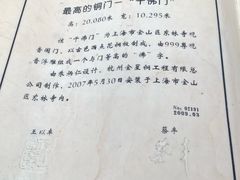 最高的铜门—“千佛门”
高：20.080米 宽：10.295米
该“千佛门”为上海市金山区东林寺观
音阁门，以古色西点花铜板制成，由999尊观
音浮雕组成一个与门等高的“佛”字。
由朱炳仁设计，杭州金星铜工程有限总
公司制作，2007年5月30日安装于上海市金山
区东林寺内。
No: 02191
2009.03
王以卓 蔡卓